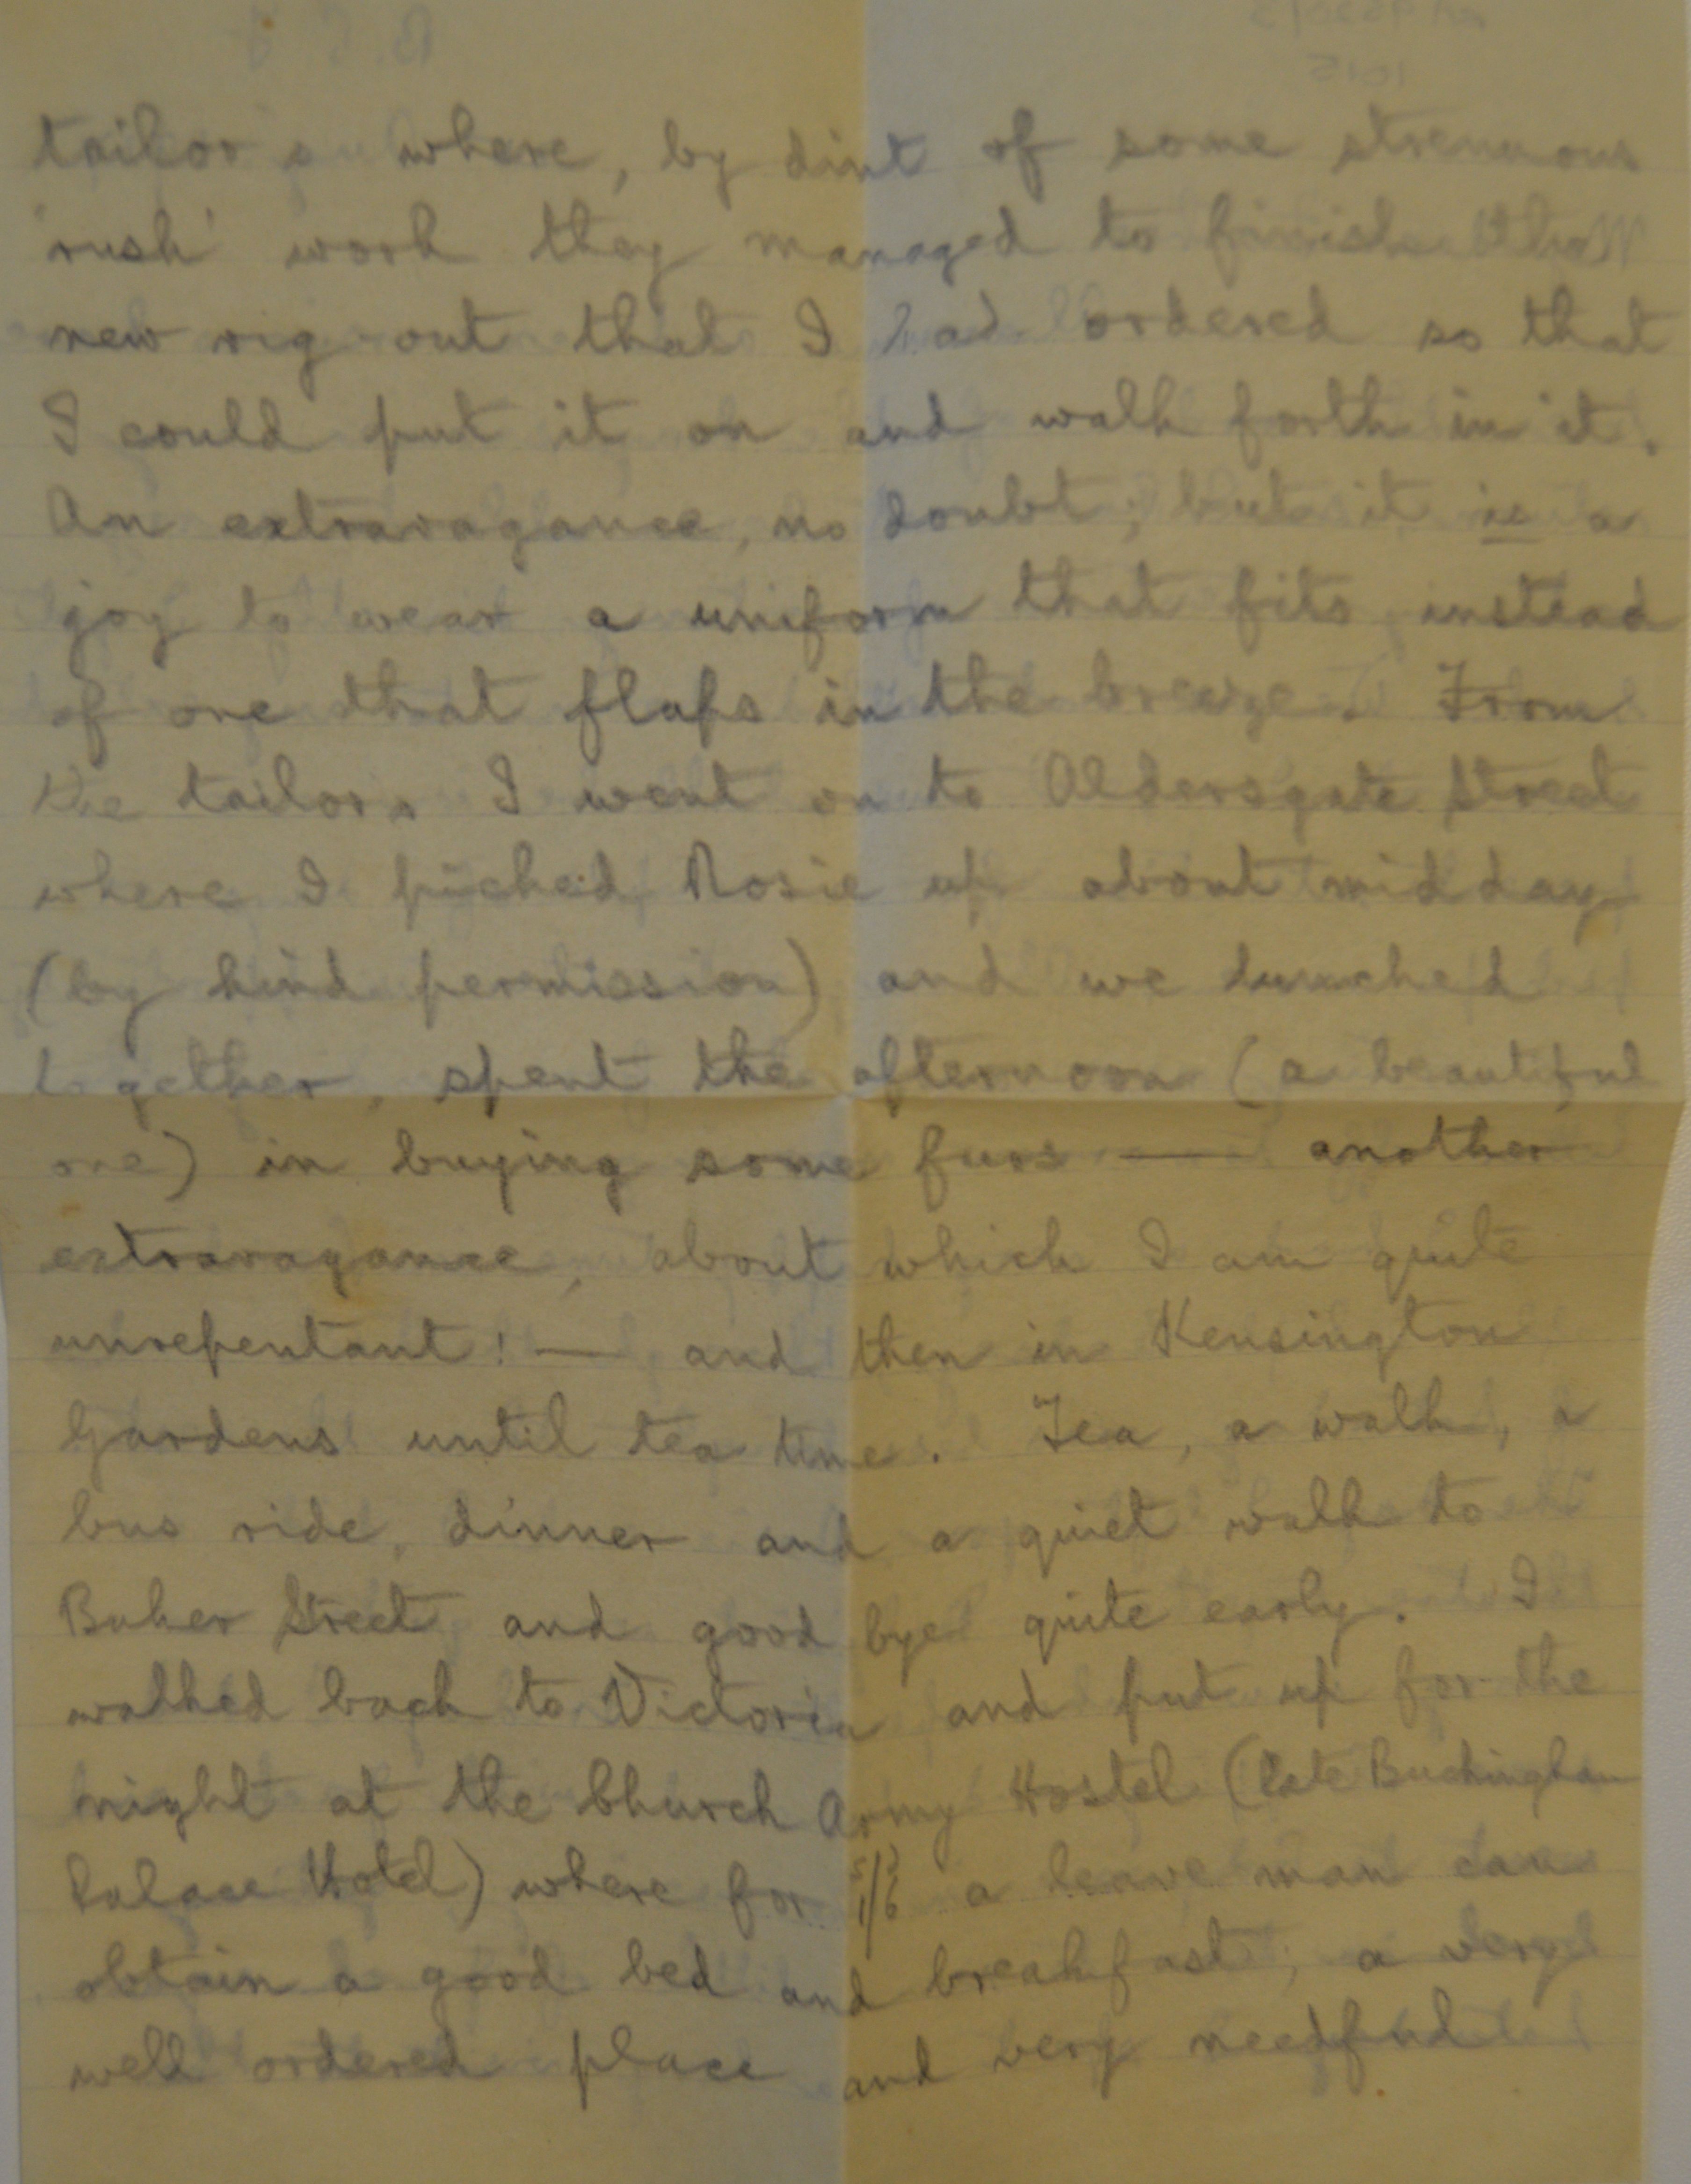 tailors where, by dint of some strenuous
'rush' work they managed to finish the
new rig-out that I had ordered so that
I could put it on and walk forth in it.
An extravagance, no doubt; but it is a
joy to wear a uniform that fits instead
of one that flaps in the breeze. From
the tailors I went on to Aldersgate Street
where I picked Rosie up about midday
(by kind permission) and we lunched
together, spent the afternoon (a beautiful
one) in buying some furs — another
extravagance, about which I am quite
unrepentant! — and then in Kensington
Gardens until tea time. Tea, a walk, a
bus ride, dinner and a quiet walk to
Baker Street and good bye quite early. I
walked back to Victoria and put up for the
night at the Church Army Hostel (late Buckingham
Palace Hotel) where for 1/6 a leave man can
obtain a good bed and breakfast; a very
well ordered place and very needful